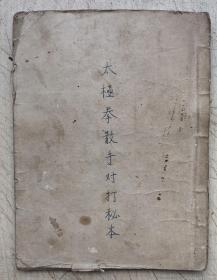 太極拳散手对打秘本